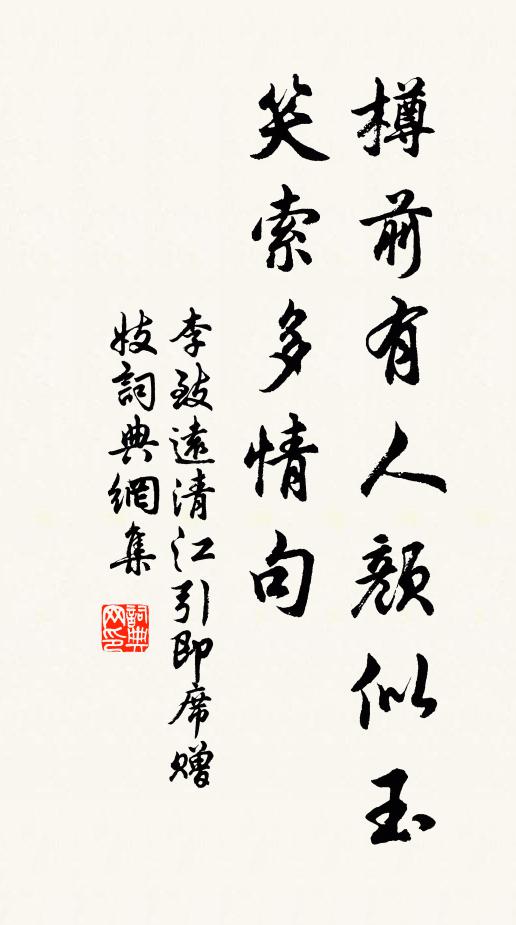 樽前有人顏似玉
笑索多情句
李致遠清江引即席贈
妓詞典網集
詞典
网印